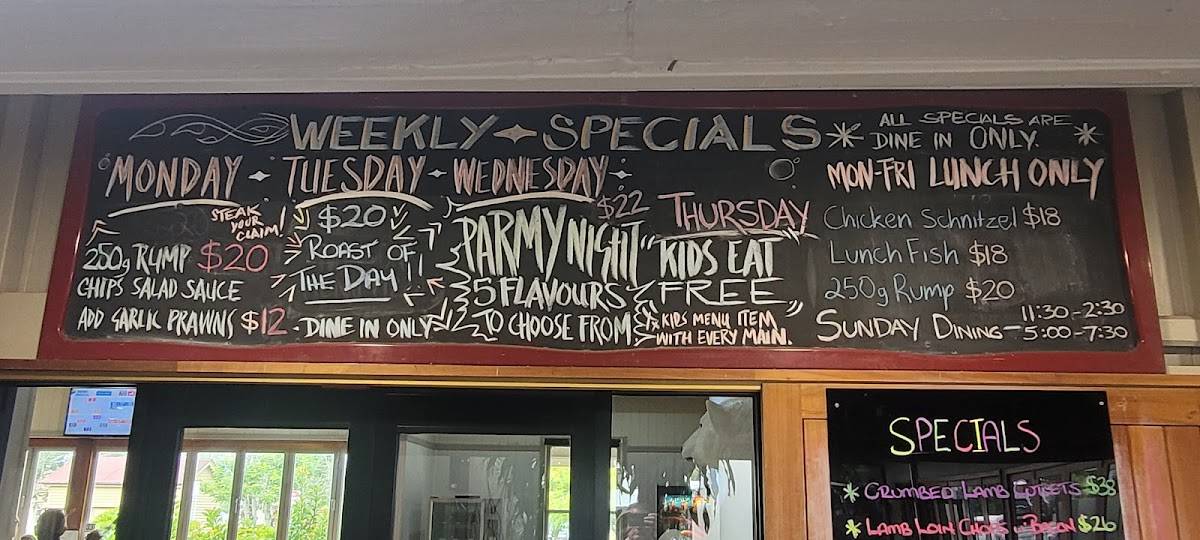 WEEKLY SPECIALS
* ALL SPECIALS ARE *
DINE IN ONLY.
MONDAY
STEAK
YOUR
CLAIM!
250g RUMP $20
CHIPS SALAD SAUCE
ADD GARLIC PRAWNS $12
TUESDAY
$20
ROAST OF
THE DAY!!
DINE IN ONLY
WEDNESDAY
$22
PARMY NIGHT
5 FLAVOURS
TO CHOOSE FROM
THURSDAY
"KIDS EAT
FREE"
1x KIDS MENU ITEM
WITH EVERY MAIN.
MON-FRI LUNCH ONLY
Chicken Schnitzel $18
Lunch Fish $18
250g Rump $20
SUNDAY DINING - 11:30-2:30
5:00-7:30
SPECIALS
* CRUMBED LAMB CUTLETS $38
* LAMB LOIN CHOPS BACON $26